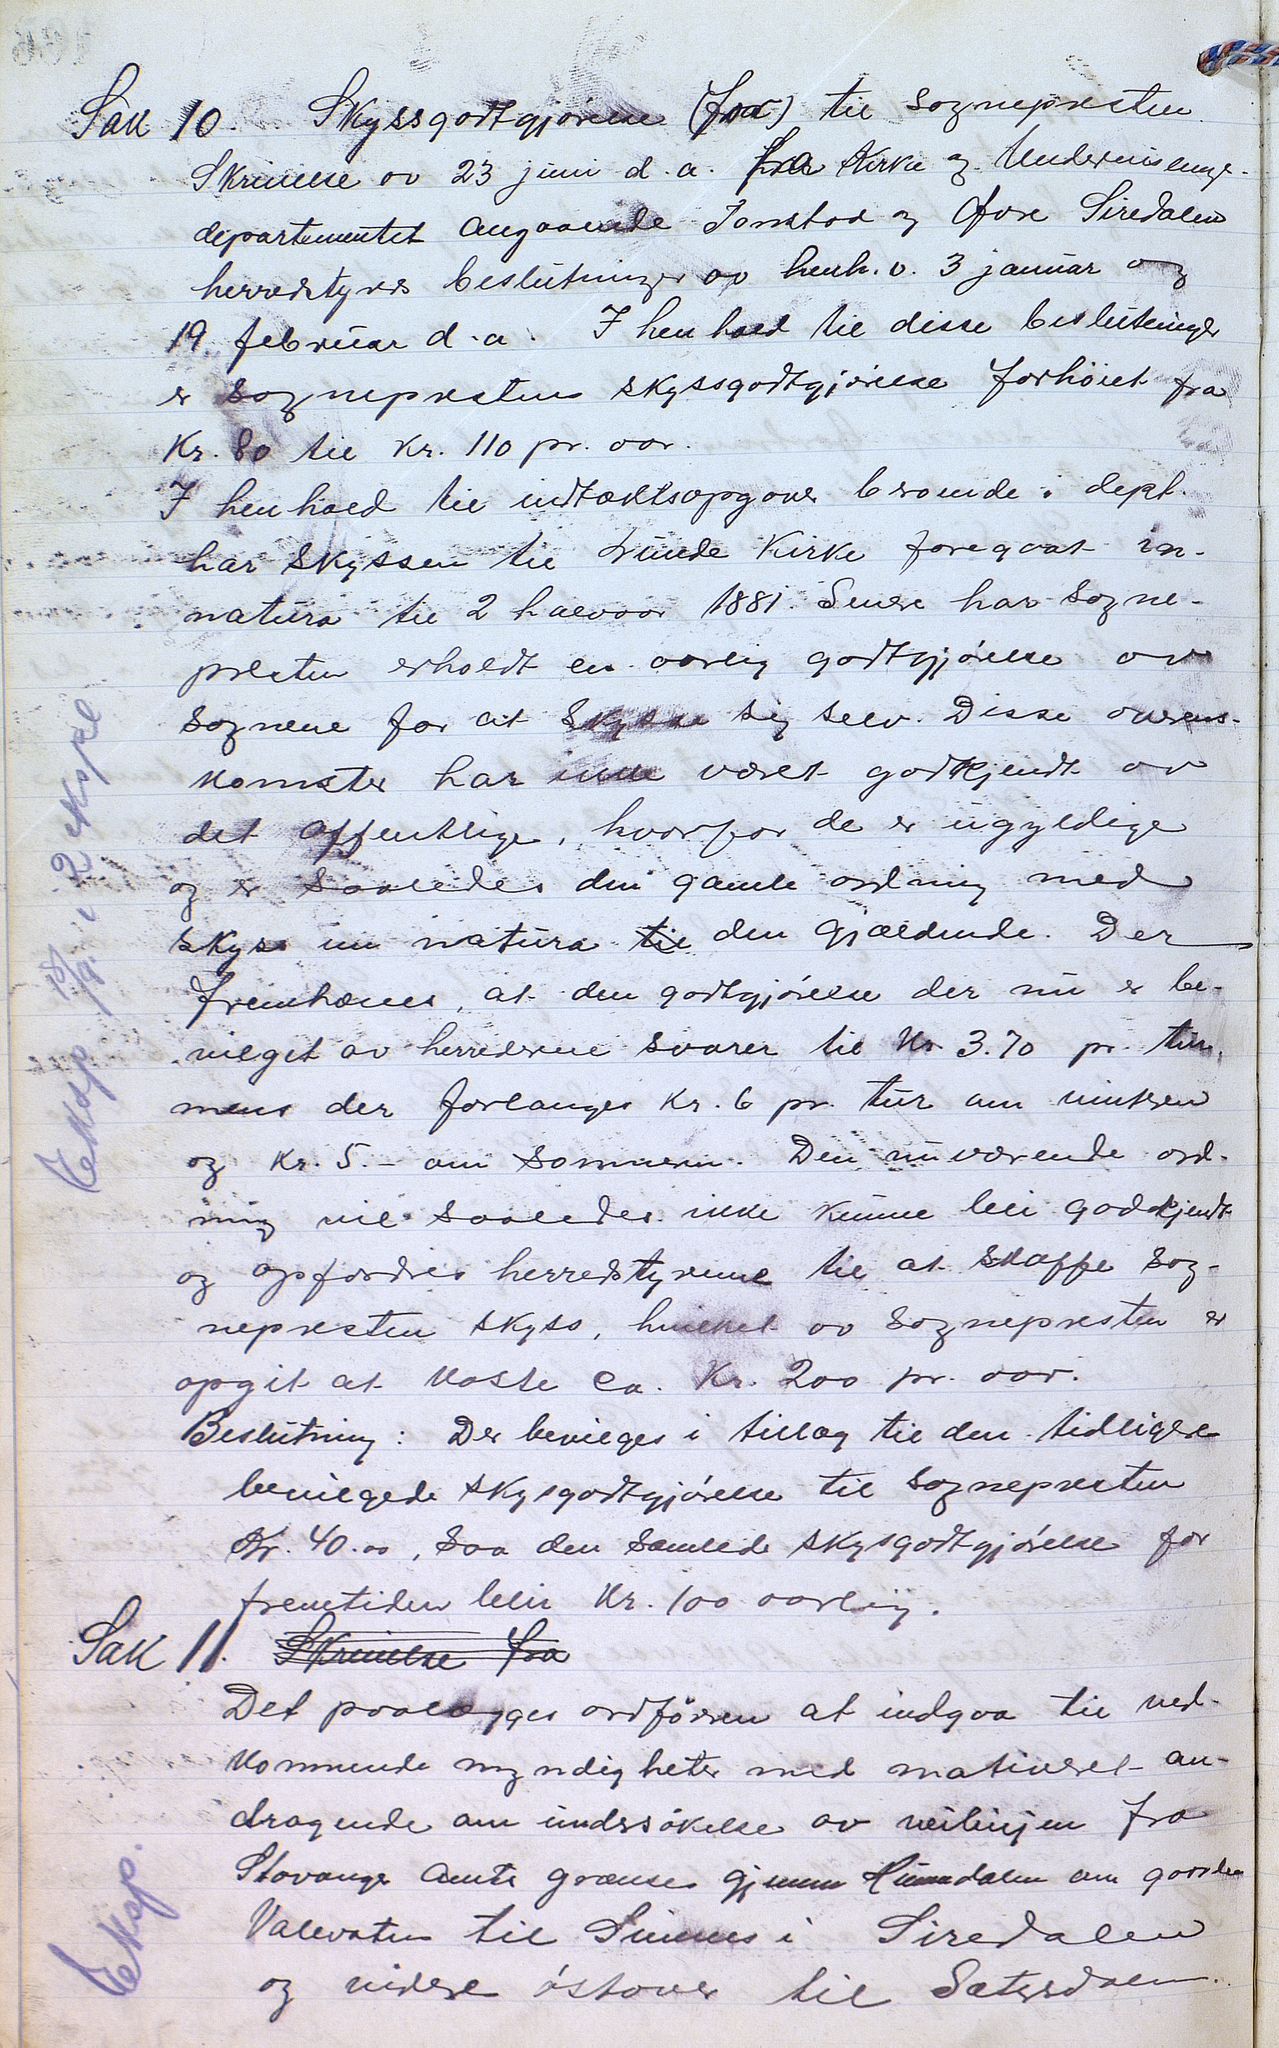 Sak 10. Skyssgodtgjørelse (fra) til sognepresten.
Skrivelse av 23 juni d.a. fra Kirke og Undervisnings-
departementet angaaende Tonstad og Øvre Siredalens
herredstyrers beslutninger av henh.v. 3 januar og
19. februar d.a. I henhold til disse beslutninger
er sogneprestens skyssgodtgjørelse forhøiet fra
Kr. 80 til kr. 110 pr. aar.
I henhold til indtæktsopgaver beroende i dept.
har skyssen til Lunde Kirke foregaat in-
natura til 2 halvaar 1881. Senere har sogne-
presten erholdt en aarlig godtgjørelse av
sognene for at skysse sig selv. Disse overens-
komster har ikke været godkjendt av
det offentlige, hvorfor de er ugyldige
og er saaledes den gamle ordning med
skyss in natura til den gjældende. Der
fremhæves, at den godtgjørelse der nu er be-
vilget av herrederne svarer til Kr 3.70 pr. tur,
mens der forlanges Kr. 6 pr. tur om vinteren
og Kr. 5.- om sommeren. Den nuværende ord-
ning vil saaledes ikke kunne bli godkjendt
og opfordres herredstyrene til at skaffe sog-
nepresten skyss, hvilket av sognepresten er
opgit at koste ca. Kr. 200 pr. aar.
Beslutning: Der bevilges i tillæg til den tidligere
bevilgede skysgodtgjørelse til sognepresten
Kr. 40.00, saa den samlede skysgodtgjørelse for
fremtiden blir Kr. 100 aarlig.
Sak 11. Skrivelse fra
Det paalægges ordføreren at indgaa til ved-
kommende myndigheter med motiveret an-
dragende om undersøkelse av veilinjen fra
Stavanger amts grænse gjennem Hunndalen om gaarden
Valevatn til Sinnes i Siredalen
og videre østover til Sætersdalen.
Eksp. 18/9. i 2 ekspl
Eksp.